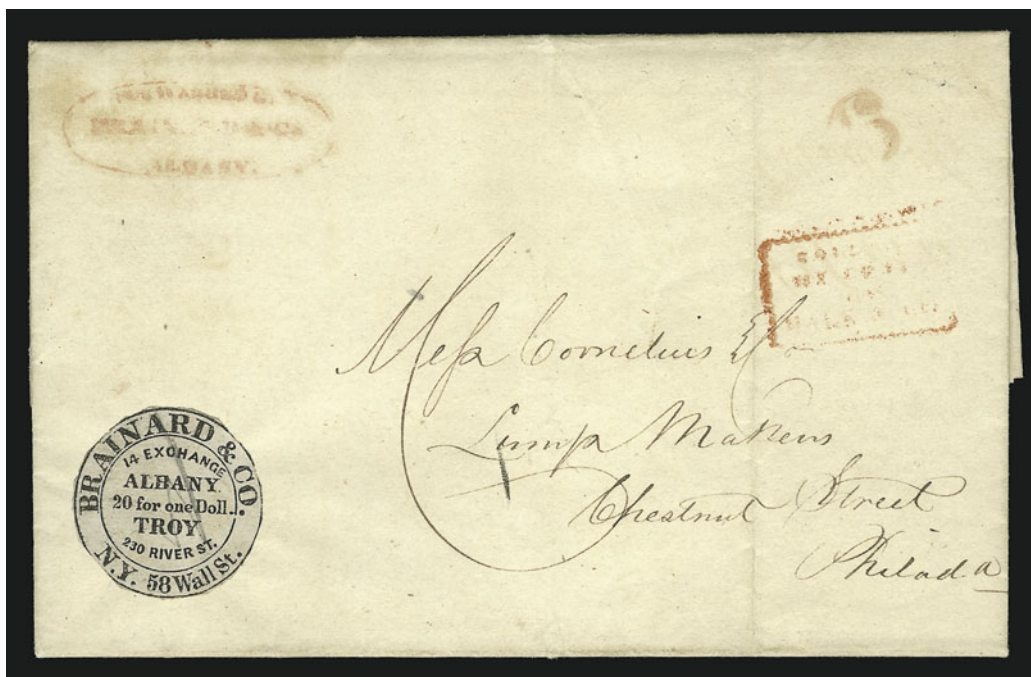 ALBANY.
Mess Cornelius &
Lamp Makers
Chestnut Street
Philada
BRAINARD & CO.
14 EXCHANGE
ALBANY
20 for one Doll.
TROY
230 RIVER ST.
N.Y. 58 Wall St.